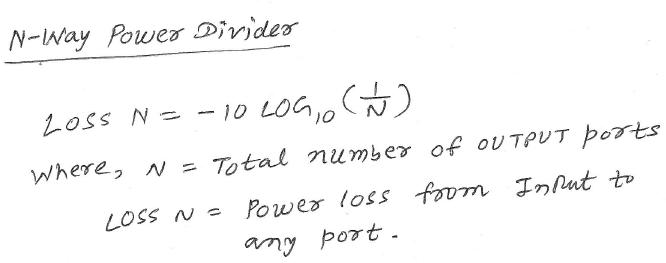 N-Way Power Divider
LOSS N = - 10 LOG₁₀ (1/N)
Where, N = Total number of OUTPUT ports
LOSS N = Power loss from InPut to
any port.